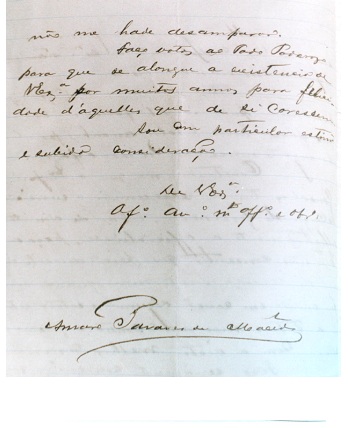 não me hade desamparar.
Faço votos ao Todo Poderozo
para que se alongue a existencia de
VExª. por muitos annos para felici
dade d'aquelles que de si carecem
Sou com particular estima
e subida consideração.
De VExª.
Afº. Amº. mtº offº. e Obrº.
Amaro Tavares de Macedo